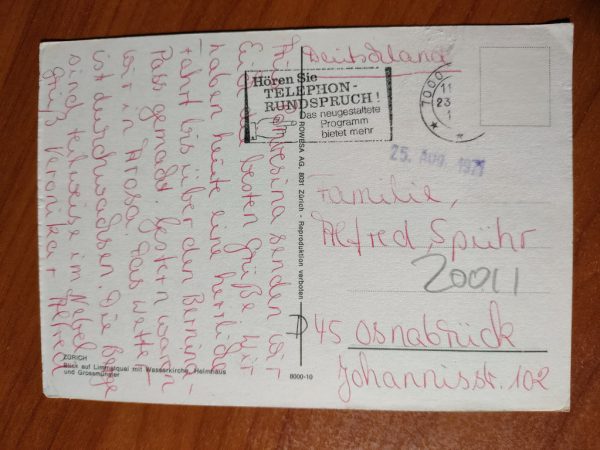 Deutschland
Hören Sie
TELEPHON-
RUNDSPRUCH!
Das neugestaltete
Programm
bietet mehr
7000
11
23
1
25. AUG. 1971
senden wir
besten Grüße Wir
haben heute eine herrliche
Fahrt bis über den Bernina-
Pass gemacht. Gestern waren
wir in Arosa. Das Wetter
ist durchwachsen. Die Berge
sind teilweise im Nebel
Gruß Veronika + Alfred
ROWESA AG, 8031 Zürich - Reproduktion verboten
Familie,
Alfred Spühr
20011
D 45 Osnabrück
Johannisstr. 102
ZÜRICH
Blick auf Limmatquai mit Wasserkirche, Helmhaus
und Grossmünster
8000-10